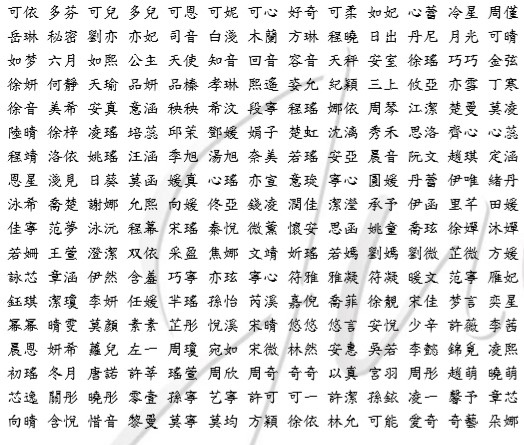 可依 多芬 可兒 多兒 可恩 可妮 可心 好奇 可柔 如妃 心蕾 冷星 周僅
岳琳 秘密 劉亦 亦妃 司音 白淺 木蘭 方琳 程曉 日出 丹尼 月光 可晴
如夢 六月 如熙 公主 天使 知音 白回 容音 天秤 安室 徐瑤 巧巧 金弦
徐妍 何靜 天瑜 品妍 品榛 孝琳 熙遙 姿允 紀穎 三上 攸亞 亦雪 丁寒
徐音 美希 安真 意涵 秧秧 希汶 段寧 程瑤 娜依 周琴 江潔 楚曼 莫凌
陸晴 徐梓 凌瑤 培蕊 邱茉 鄧媛 娟子 楚虹 沈漓 秀禾 思洛 齊心 心蕊
程靖 洛依 姚瑤 汪涵 季旭 湯旭 奈美 若瑤 安亞 晨音 阮文 趙琪 定涵
恩星 淺見 日葵 莫函 媛真 心瑤 亦宣 意琰 寧心 圓媛 丹蕾 伊唯 緒丹
泳希 喬楚 謝娜 允熙 向媛 佟亞 錢凌 潤佳 潔瀅 承予 伊函 里芊 田媛
佳寧 范夢 泳沅 程幕 宋瑤 秦悅 微薰 懷安 思函 姚童 喬玹 徐嬋 沐嬋
若姍 王萱 澄潔 双依 采盈 焦娜 文靖 妡瑤 若嫣 劉嫣 劉微 芷微 方媛
詠芯 章涵 伊然 含羞 巧寧 亦玹 寧心 符雅 雅凝 符凝 暖文 范寧 雁妃
鈺琪 潔瓊 李妍 任媛 羋瑤 孫怡 芮溪 嘉倪 喬菲 徐靚 宋佳 梦言 奕星
幂幂 晴雯 莫顏 素素 芷彤 悅溪 宋晴 悠悠 悠言 安悅 少辛 許薇 李茜
晨恩 妍希 蘿兒 左一 周瓊 宛如 宋微 林然 安惠 吳若 李懿 錦覓 凌熙
初瑤 冬月 唐諾 許莘 瑤萱 周欣 周奇 奇奇 以真 宮羽 周彤 趙萌 曉萌
芯逸 關彤 曉彤 零壹 孫寧 艺寧 許可 可一 許潔 孫鉉 凌一 馨予 章芯
向晴 含悅 惜音 黎曼 莫寧 莫均 方穎 徐依 林允 可能 爱奇 奇藝 朵娜